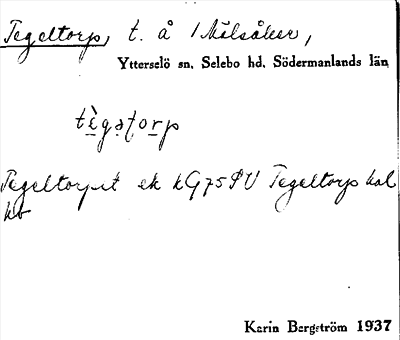 Tegeltorp, t. å 1 Mälsåker,
Ytterselö sn, Selebo hd, Södermanlands län
Tegeltorpet ek kG75SV Tegeltorps hal
Karin Bergström 1937